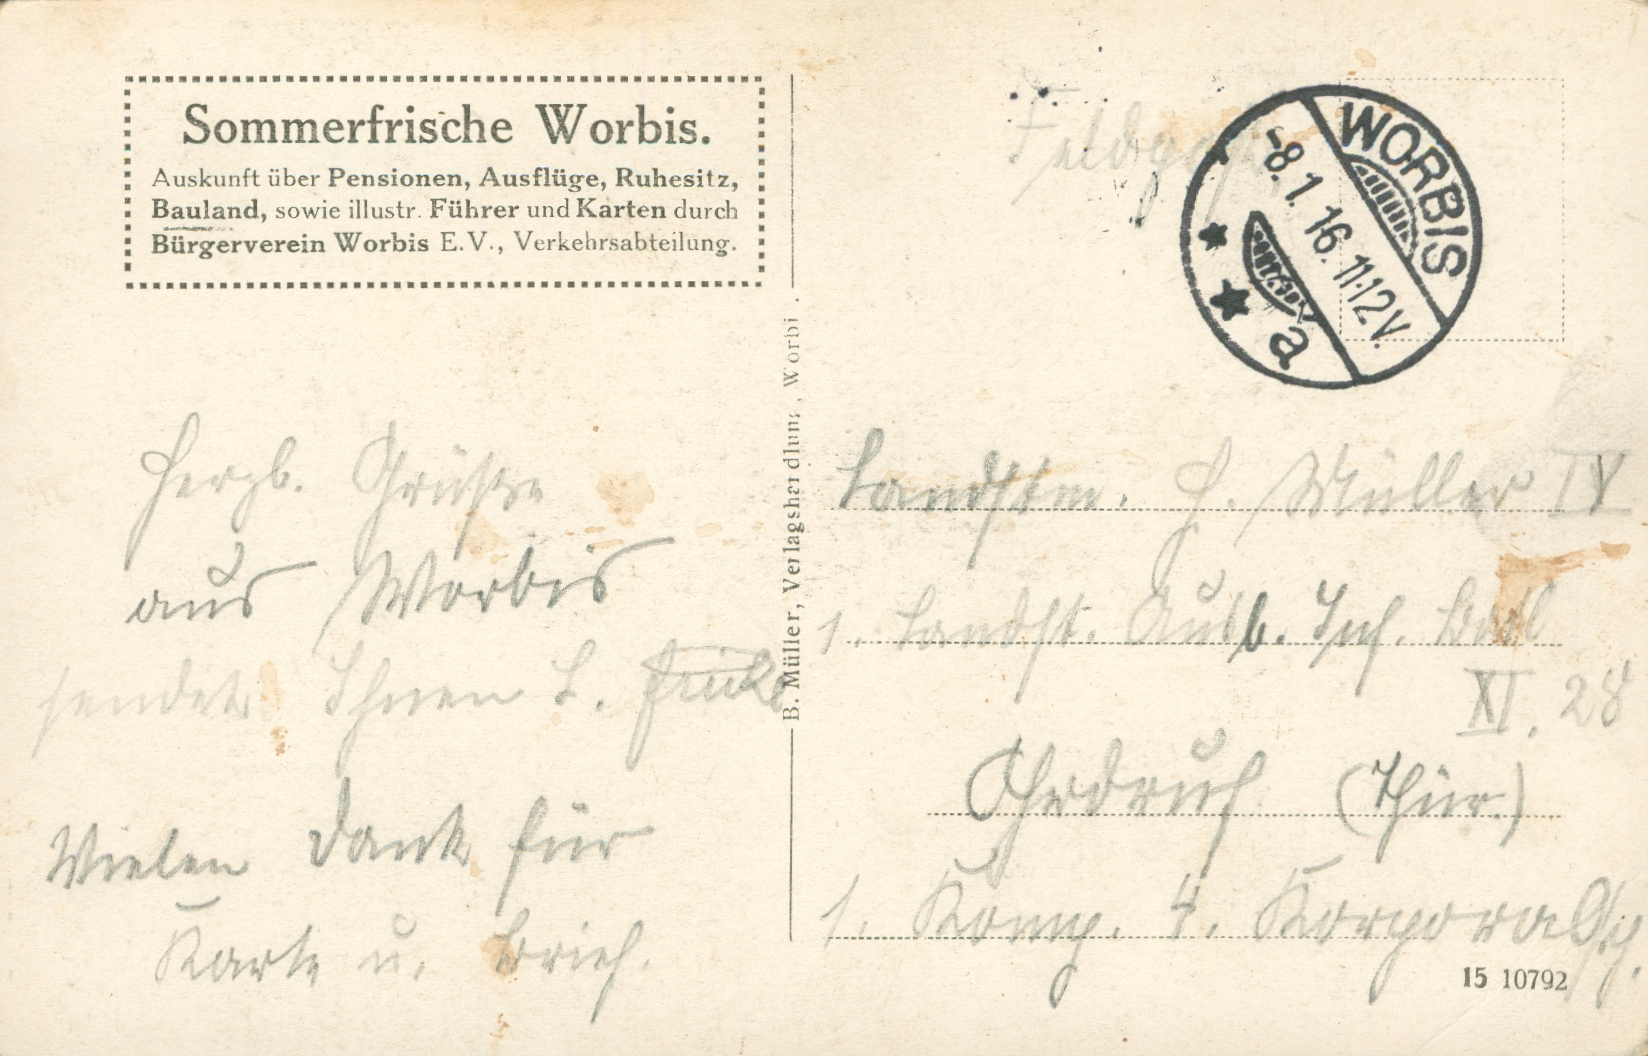 Sommerfrische Worbis.
Auskunft über Pensionen, Ausflüge, Ruhesitz,
Bauland, sowie illustr. Führer und Karten durch
Bürgerverein Worbis E.V., Verkehrsabteilung.
Feldpost
WORBIS
-8.1.16.11-12V.
* * a
Herzl. Grüße
aus Worbis
sendet Ihnen L.
Vielen Dank für
Karte u. Brief.
B. Müller, Verlagshandlung, Worbi .
Landstm. H. Müller IV
1. Landst. Ausb. Inf. Batl
XI. 28
Ohrdruf (Thür.)
1. Komp. 4. Korporalsch.
15 10792